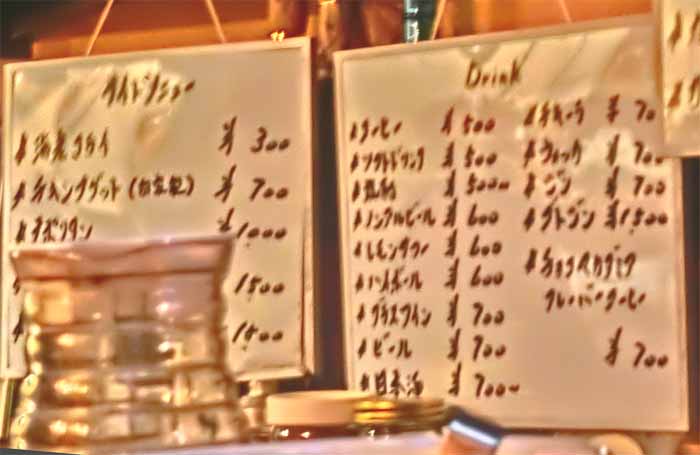 サイドメニュー
#海老フライ ¥300
#チキンナゲット(自家製) ¥700
#ナポリタン ¥1000
1500
1500
Drink
#コーヒー ¥500
#ソフトドリンク ¥500
¥500~
#ノンアルビール ¥600
#レモンサワー ¥600
#ハイボール ¥600
#グラスワイン ¥700
#ビール ¥700
#日本酒 ¥700~
#テキーラ ¥70
#ウォッカ ¥700
#ジン ¥700
¥1,500
フレーバーコーヒー
¥700